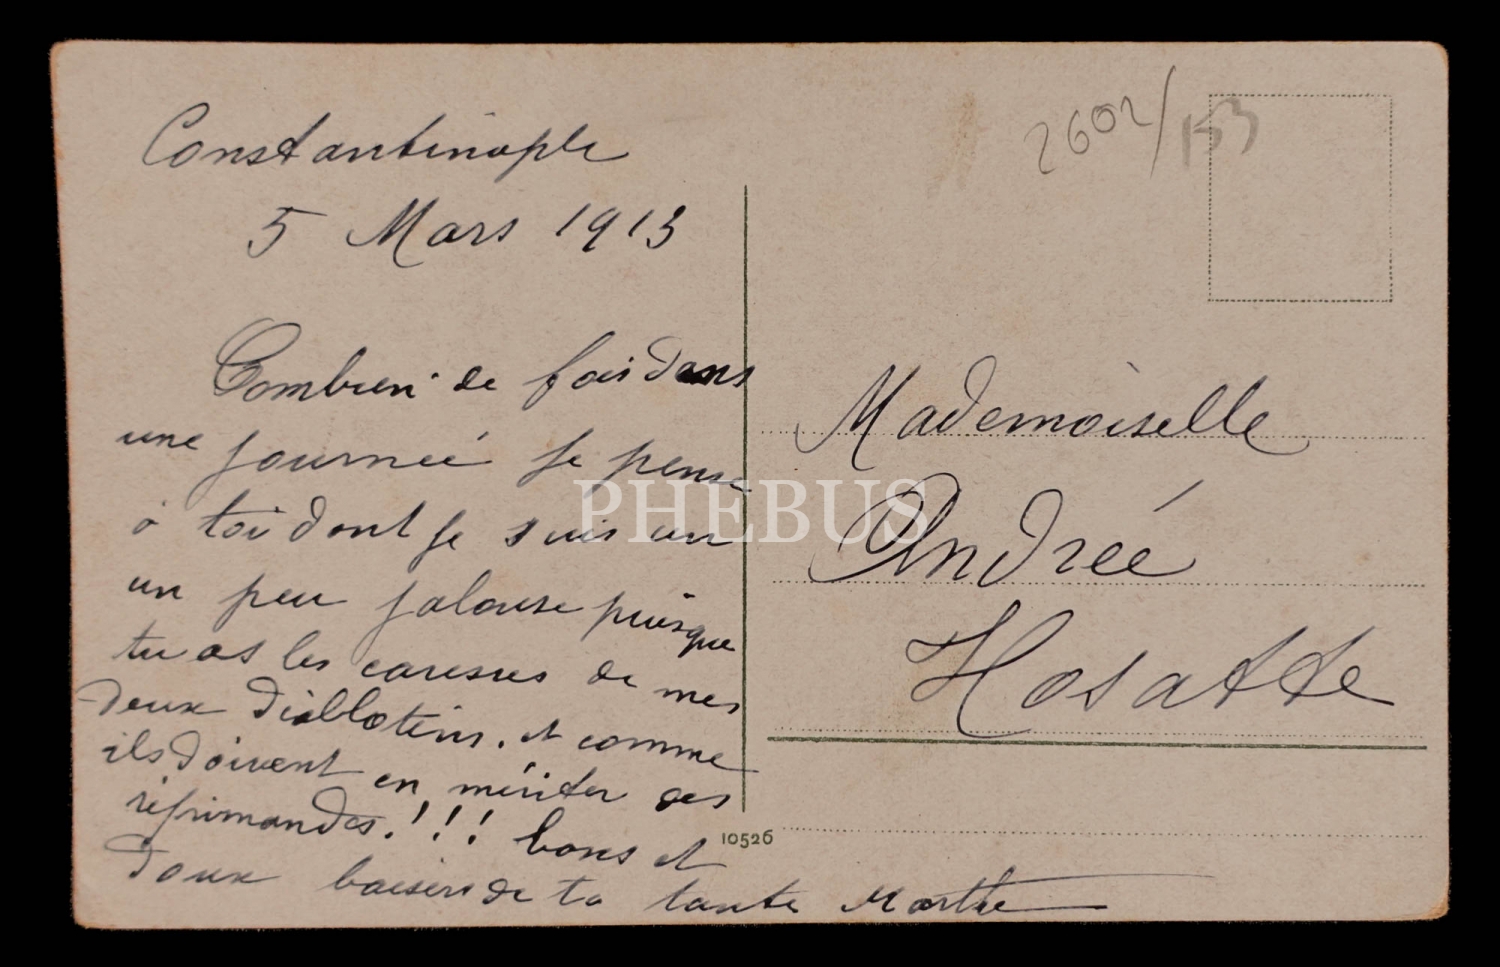 Constantinople
5 Mars 1913
Combien de fois dans
une journeé je pense
à toi dont je suis un
un peu jalouse puisque
tu as les caresses de mes
deux diablotins. et comme
ils doivent en mériter des
réprimandes.!!! bons et
doux baisers de ta tante Marthe
2602/153
Mademoiselle
Andrée
Hosatte
10526
PHEBUS